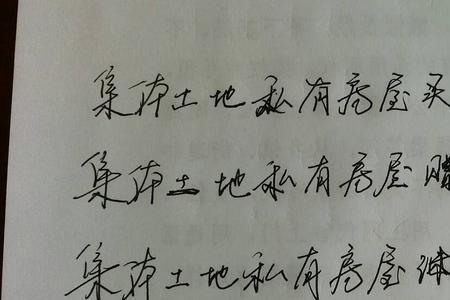 集体土地私有房屋买
集体土地私有房屋赠
集体土地私有房屋继